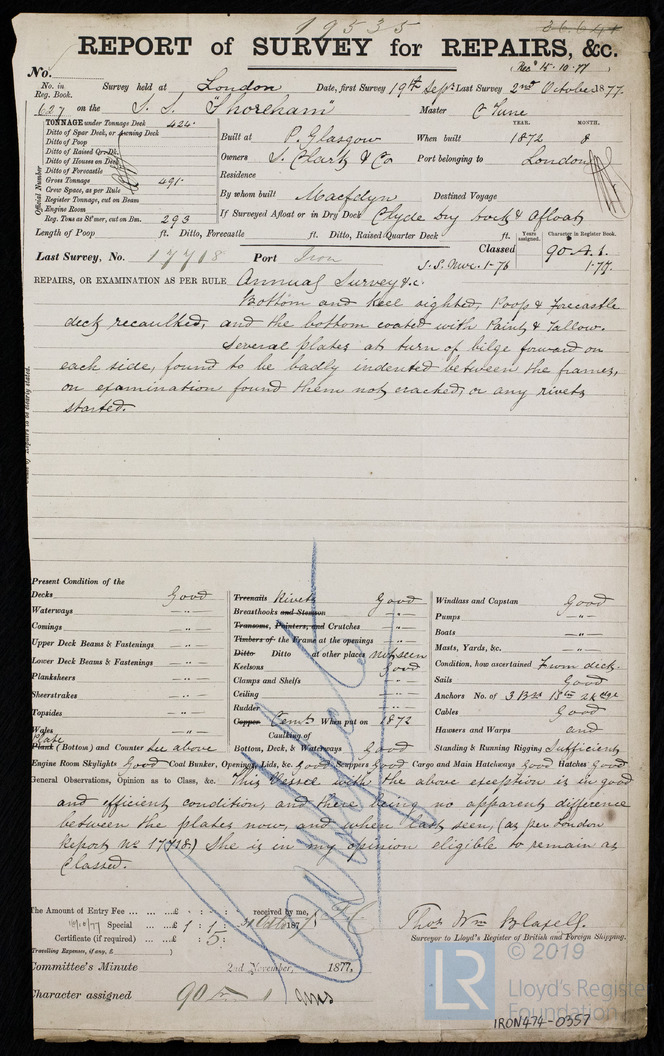 19535
REPORT of SURVEY for REPAIRS, &c.
No.
Recd 15.10.77
No. in Reg. Book.
Survey held at London Date, first Survey 19th Sept Last Survey 2nd October 1877.
627 on the S. S. "Shoreham" Master
TONNAGE under Tonnage Deck 424
Ditto of Spar Deck, or Awning Deck
Ditto of Poop
Ditto of Raised Qr. Dk.
Ditto of Houses on Deck
Ditto of Forecastle
Gross Tonnage 491
Crew Space, as per Rule
Register Tonnage, cut on Beam
Engine Room
Reg. Tons as St'mer, cut on Bm. 293
Official Number
YEAR. MONTH.
Built at P. Glasgow When built 1872 8
Owners & Co Port belonging to London
Residence
By whom built Destined Voyage
If Surveyed Afloat or in Dry Dock Clyde Dry Dock & Afloat
Length of Poop ft. Ditto, Forecastle ft. Ditto, Raised Quarter Deck ft.
Years assigned. Character in Register Book.
Last Survey, No. 17718 Port Iron Classed 90 A. 1.
1.77.
REPAIRS, OR EXAMINATION AS PER RULE Annual Survey &c.
Bottom and Keel sighted, Poop & Forecastle
deck recaulked, and the bottom coated with Paint & Tallow.
Several plates at turn of bilge forward on
each side, found to be badly indented between the frames,
on examination found them not cracked, or any rivets
started.
Present Condition of the
Decks Good
Waterways -"-
Comings -"-
Upper Deck Beams & Fastenings -"-
Lower Deck Beams & Fastenings -"-
Planksheers -"-
Sheerstrakes -"-
Topsides -"-
Wales -"-
Plate
Plank (Bottom) and Counter See above
Treenails Rivets Good
Breasthooks and Stemson -"-
Transoms, Pointers, and Crutches -"-
Timbers of the Frame at the openings -"-
Ditto Ditto at other places not seen
Keelsons Good
Clamps and Shelfs -"-
Ceiling -"-
Rudder -"-
Copper Cemt When put on 1872
Caulking of
Bottom, Deck, & Waterways Good
Windlass and Capstan Good
Pumps -"-
Boats -"-
Masts, Yards, &c. -"-
Condition, how ascertained From deck.
Sails Good
Anchors No. of 3 Brs 1 Stm 2 Kdge
Cables Good
Hawsers and Warps and
Standing & Running Rigging Sufficient
Engine Room Skylights Good Coal Bunker, Openings, Lids, &c. Good Scuppers Good Cargo and Main Hatchways Good Hatches Good
General Observations, Opinion as to Class, &c. This Vessel with the above exception is in good
and efficient condition, and there being no apparent difference
between the plates now, and when last seen, (as per London
Report No 17718) She is in my opinion eligible to remain as
Classed.
The Amount of Entry Fee £ : : received by me,
Special £ 1 : 1 : 187
Certificate (if required) : 5 :
Travelling Expenses, if any, £
Thos Wm Blaxell.
Surveyor to Lloyd's Register of British and Foreign Shipping.
Committee's Minute 2nd November, 1877.
Character assigned 90
© 2019
LR Lloyd's Register Foundation
IRON474-0357